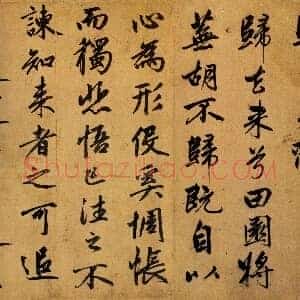 歸去来兮田園將
蕪胡不歸既自以
心為形役奚惆悵
而獨悲悟已往之不
諫知来者之可追